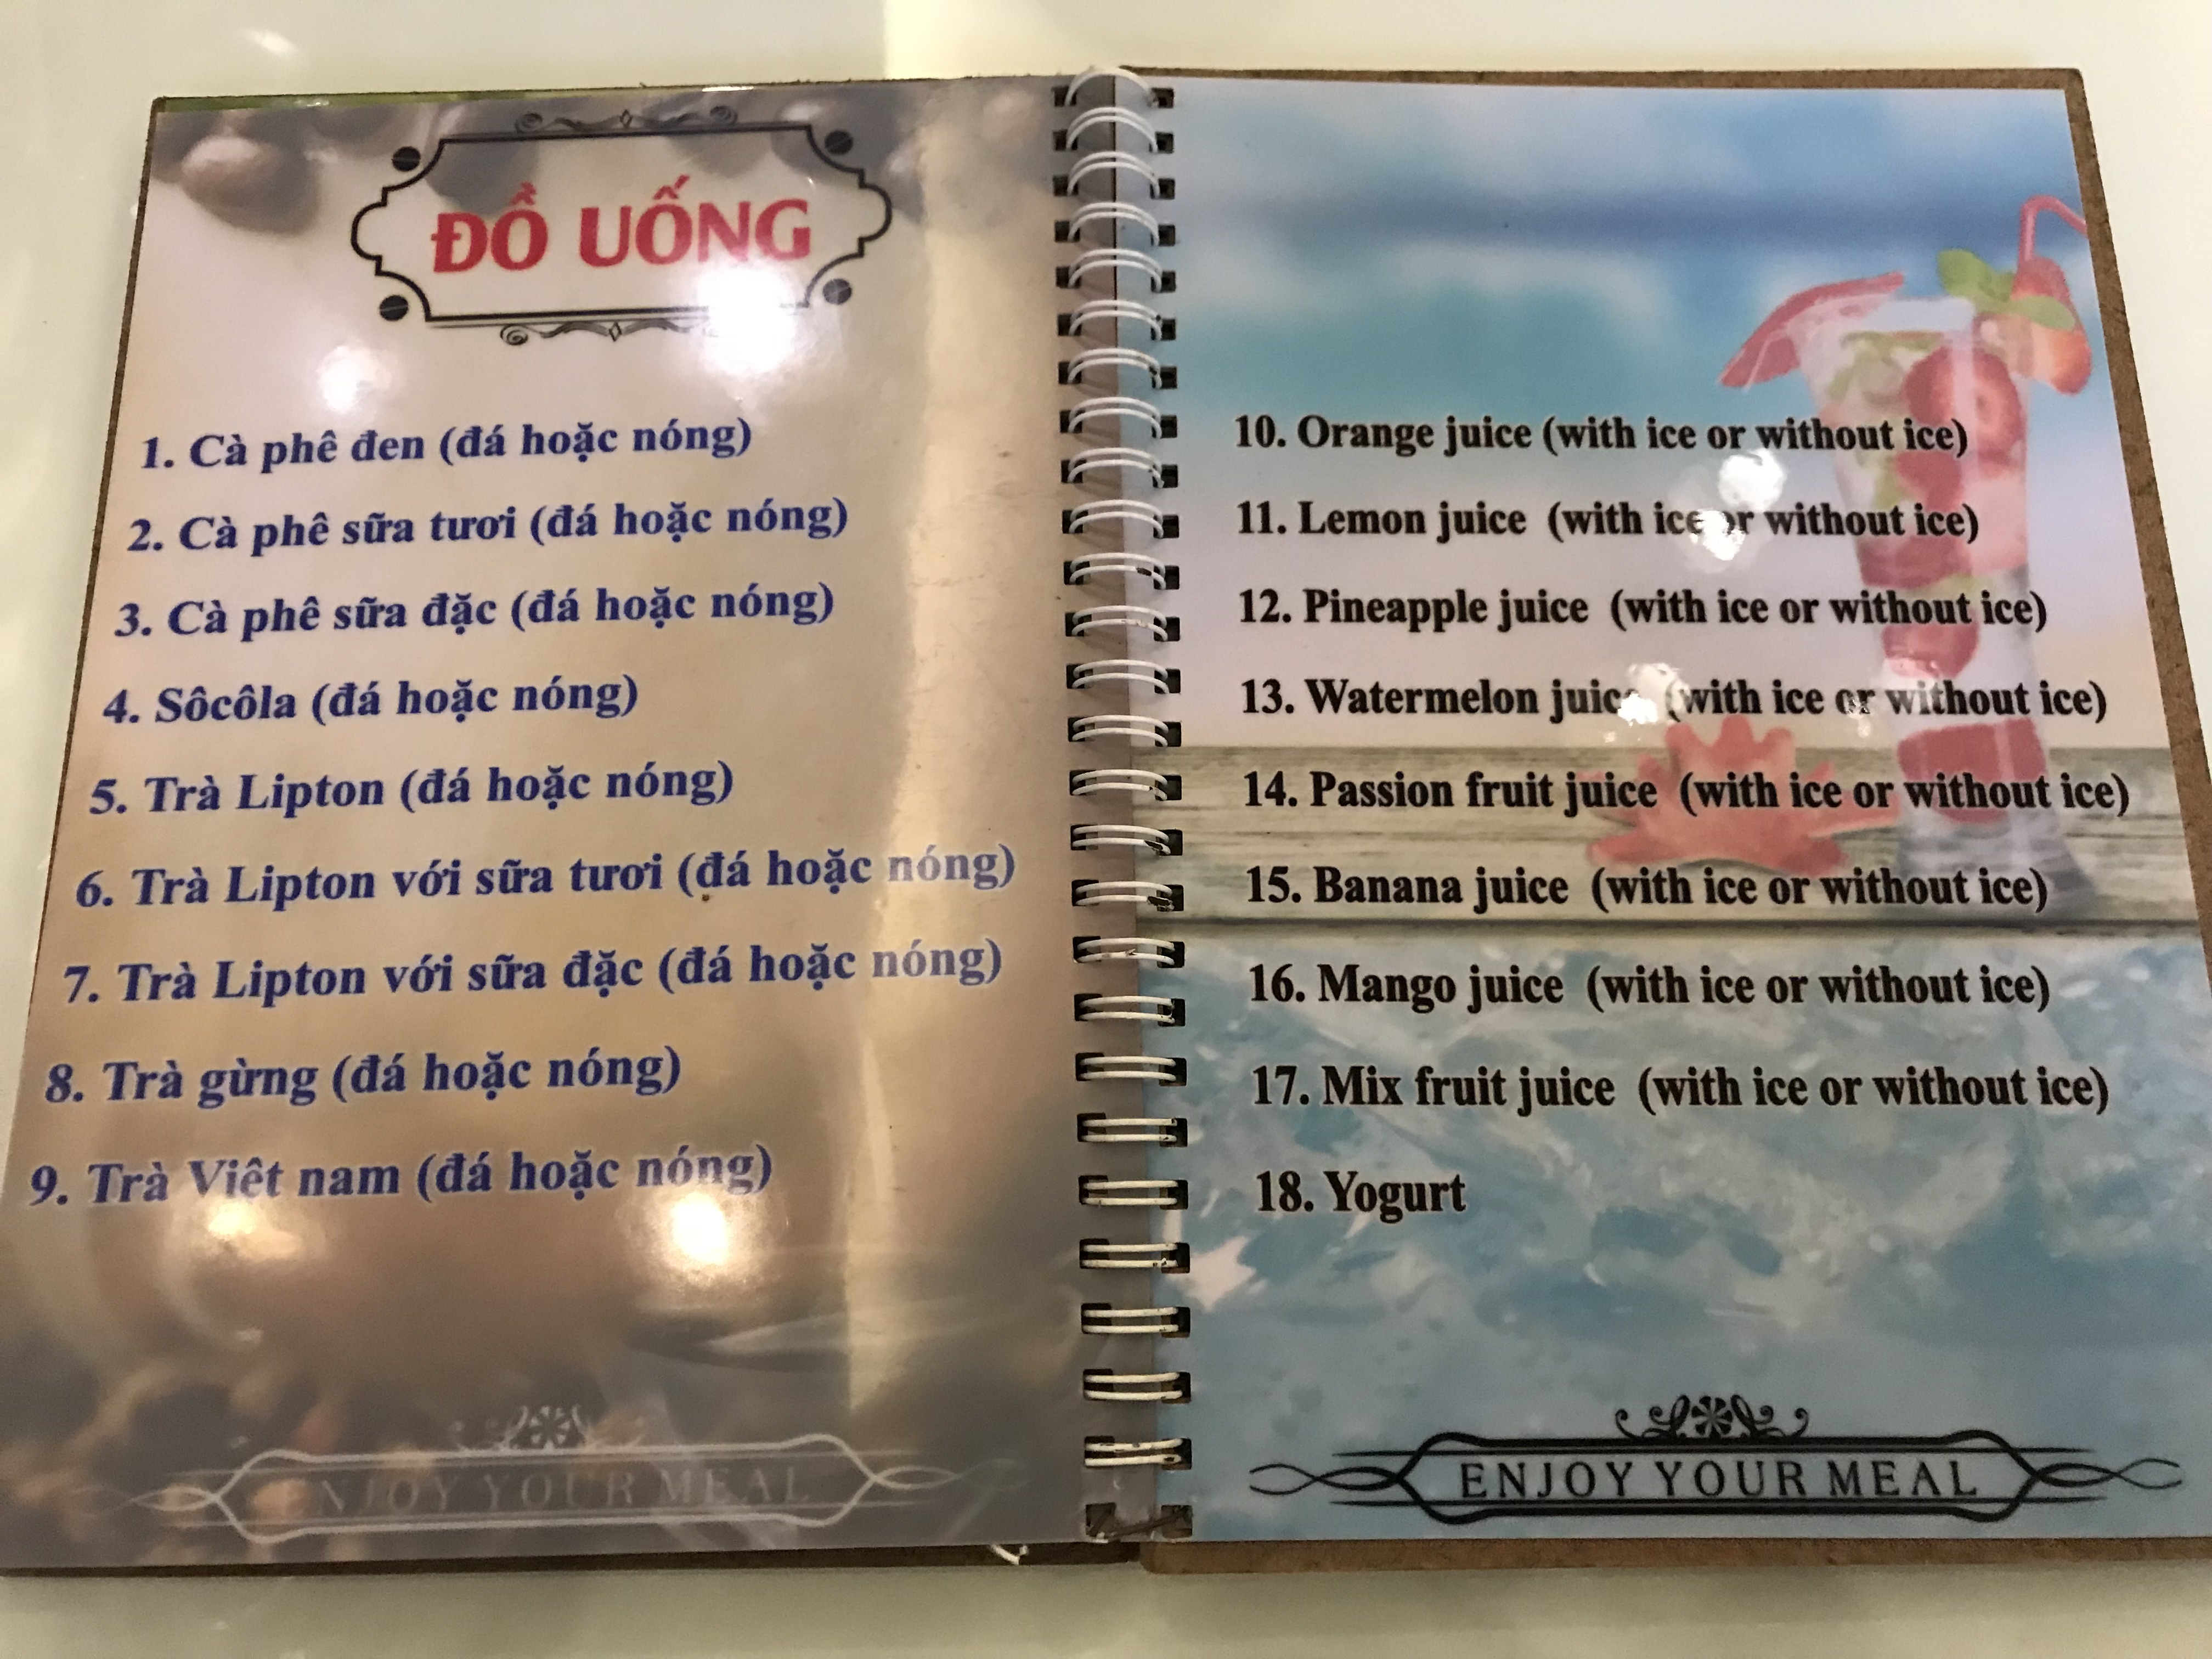 ĐỒ UỐNG
1. Cà phê đen (đá hoặc nóng)
2. Cà phê sữa tươi (đá hoặc nóng)
3. Cà phê sữa đặc (đá hoặc nóng)
4. Sôcôla (đá hoặc nóng)
5. Trà Lipton (đá hoặc nóng)
6. Trà Lipton với sữa tươi (đá hoặc nóng)
7. Trà Lipton với sữa đặc (đá hoặc nóng)
8. Trà gừng (đá hoặc nóng)
9. Trà Việt nam (đá hoặc nóng)
ENJOY YOUR MEAL
10. Orange juice (with ice or without ice)
11. Lemon juice (with ice or without ice)
12. Pineapple juice (with ice or without ice)
13. Watermelon juice (with ice or without ice)
14. Passion fruit juice (with ice or without ice)
15. Banana juice (with ice or without ice)
16. Mango juice (with ice or without ice)
17. Mix fruit juice (with ice or without ice)
18. Yogurt
ENJOY YOUR MEAL